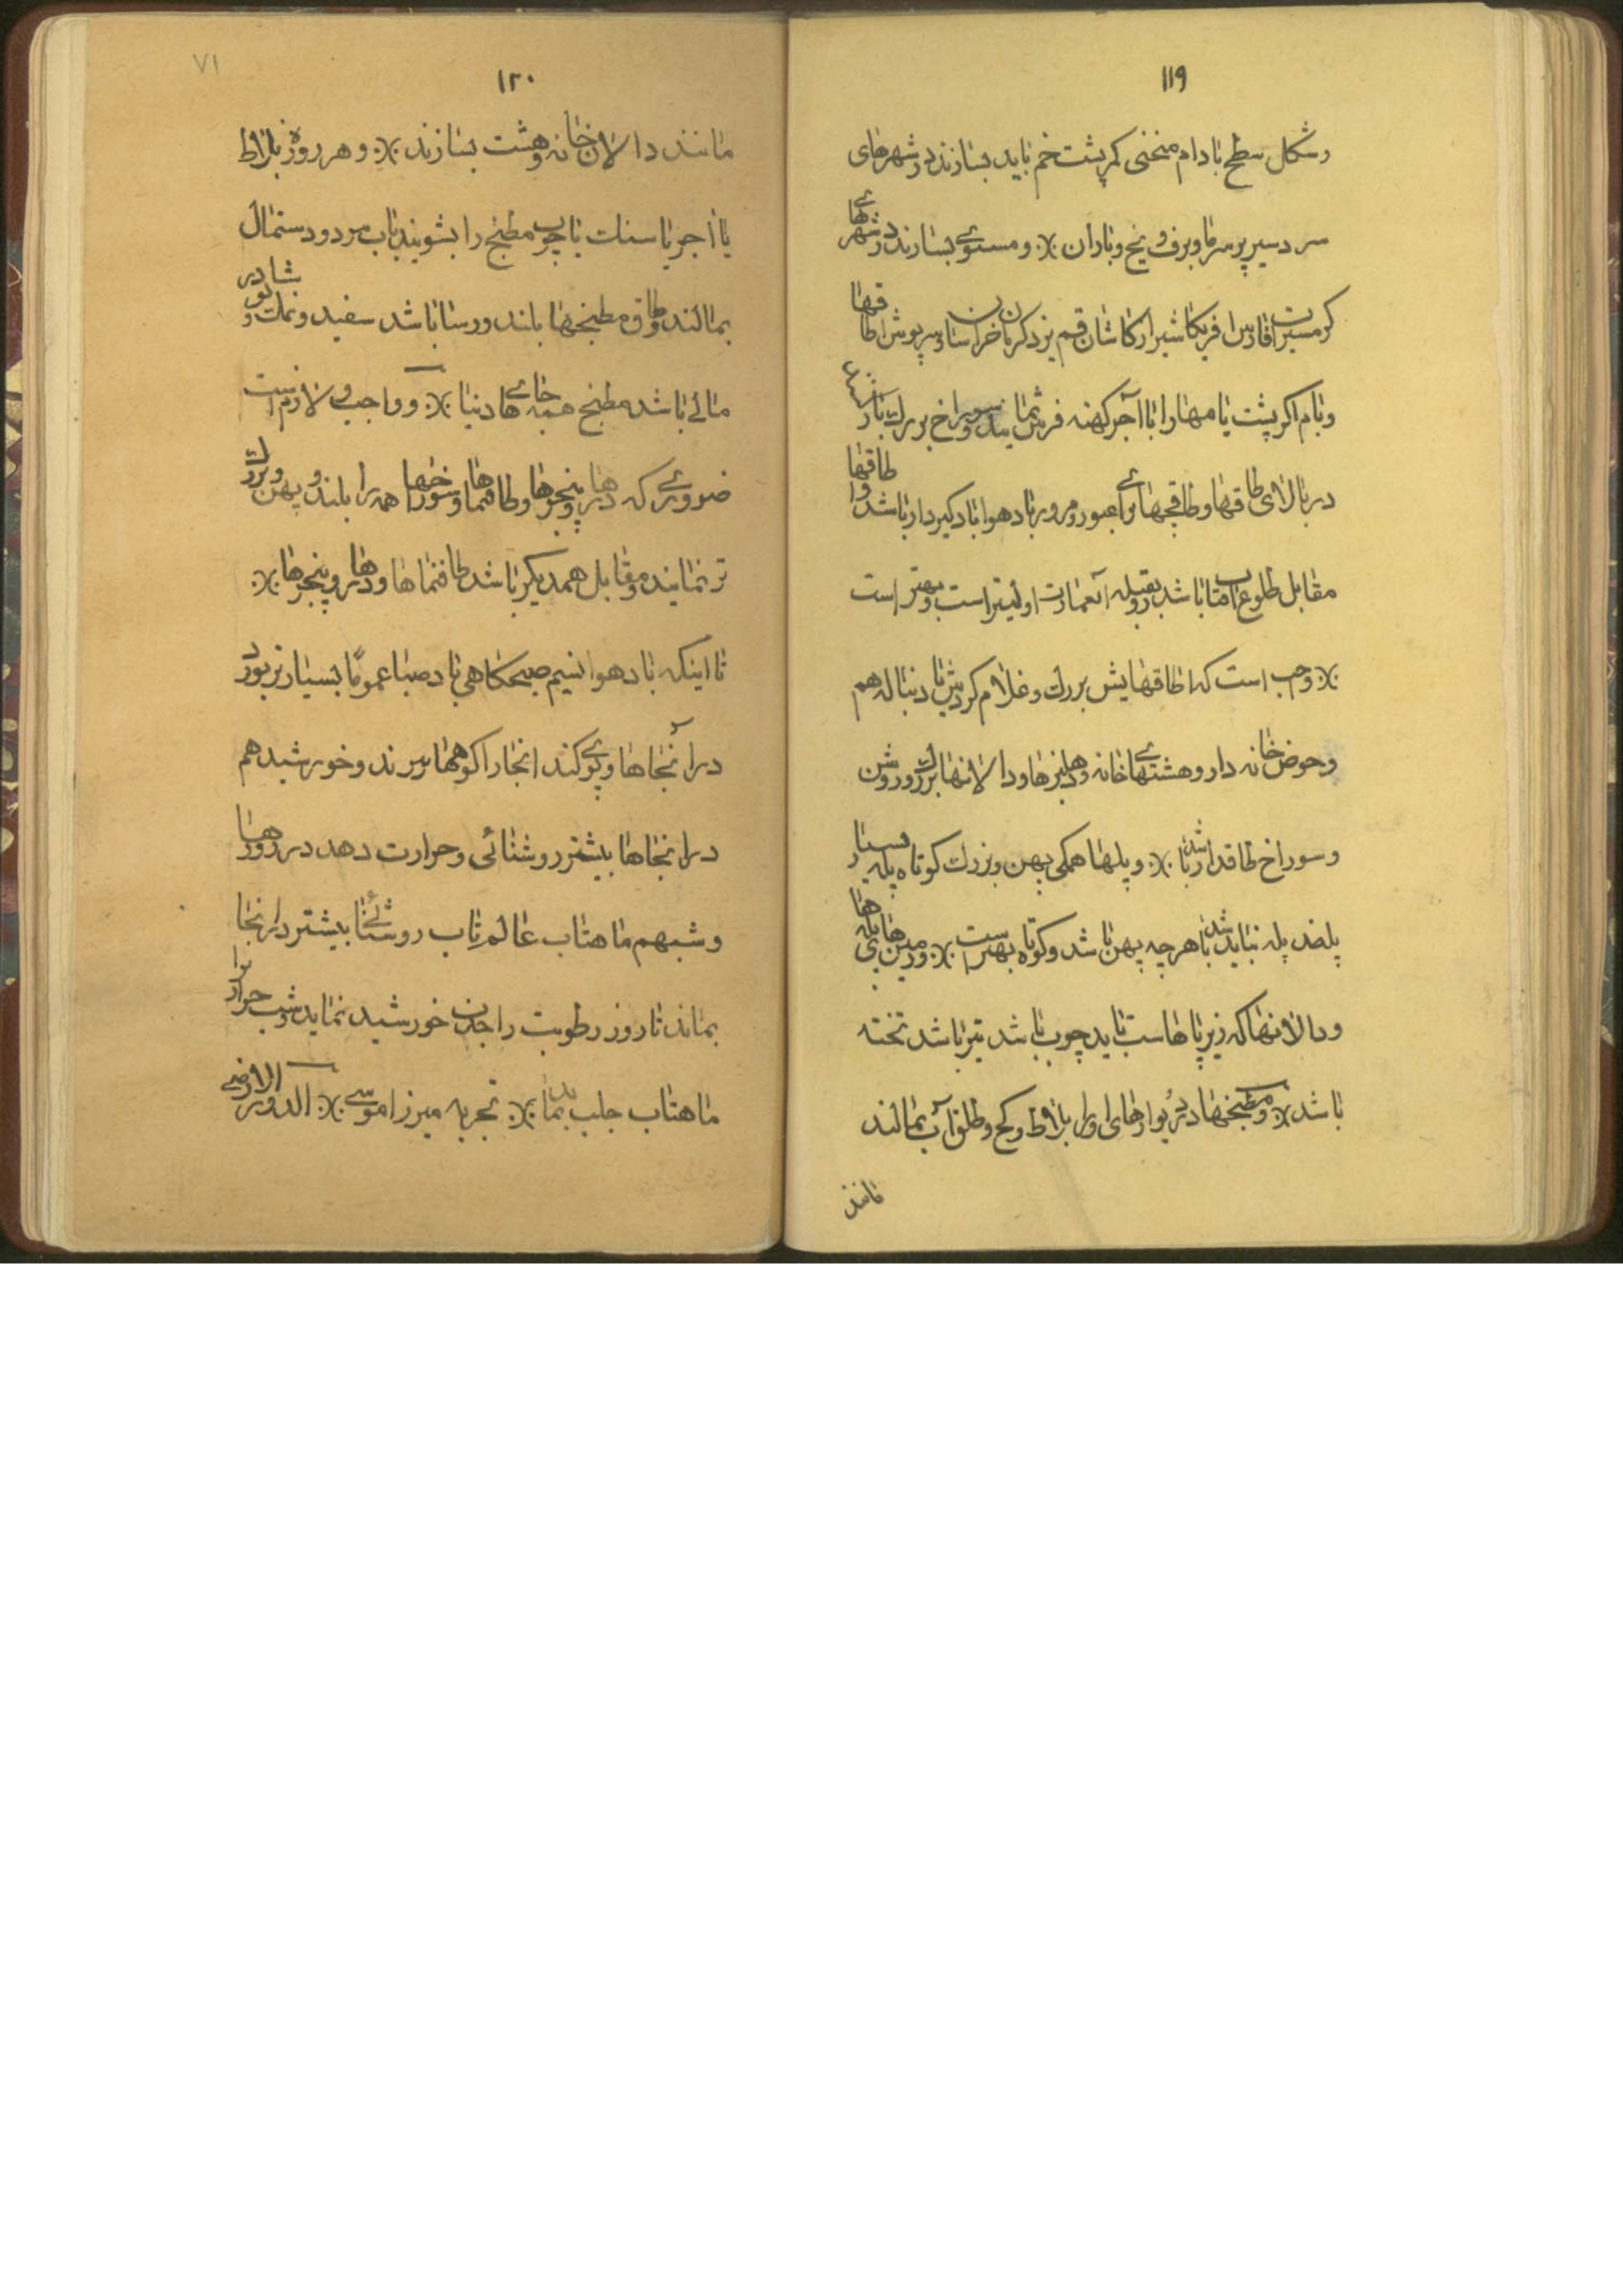 ۱۱۹
و شکل سطح بادام منحنی کمر پشت خم باید بسازند در شهرهای
سردسیر پر سرما و برف و یخ و باران ٪ و مستوی بسازند در شهرهای
گرمسیرات فارس افریکا شیراز کاشان قم یزد کرمان خراسان و سرپوش اطاقها
و بام اگر پشت بامها را با آجر کهنه فرش نمایند و سوراخ بزرگ
در بالای طاقها و طاقچها برای عبور و مرور باد هوا بادگیر دار باشد و اطاقها
مقابل طلوع افتاب باشد رو بقبله آنعمارت اولیتر است و بهتر است
٪ وجب است که اطاقهایش بزرگ و غلام گردش با دنباله هم
و حوض خانه دار و هشتیهای خانه و دهلیزها و دالانها بزرگ و روشن
و سوراخ طاقدار باشد ٪ و پلها همگی پهن و بزرگ کوتاه پله بسیار
پلضد پله نباید باشد هر چه پهن باشد و کوتاه بهتر است ٪ و زمین های پله ها
و دالانها که زیر پاها است باید چوب باشد تیر باشد تخته
باشد ٪ و مطبخها در دیوارهای او را بلاط و گچ و طلق آب بمالند
مانند
۷۱
۱۲۰
مانند دالان خانه و هشت بسازند ٪ و هر روزه بلاط
یا اجر یا سنک یا چوب مطبخ را بشویند باب مرد و دستمال
بمالند و طاق مطبخها بلند و رسا باشد سفید و نمک و نوشادر
مالی باشد مطبخ همه جای ها دنیا ٪ و واجب و لازم است
ضروری که درها و پنجرها و طاقنماها و سوراخها همه را بلند و پهن و بزرگ
تر نمایند و مقابل همدیکر باشد طاقنماها و درها و پنجرها ٪
تا اینکه باد هوا نسیم صبحکاهی باد صبا عموماً بسیار تر بوزد
در آنجاها و بوی گند انجا را کوهها ببرند و خورشید هم
در انجاها بیشتر روشنائی و حرارت دهد در روزها
و شبهم ماهتاب عالم تاب روشنائی بیشتر در انجا
بماند تا روز رطوبت را جدن خورشید نماید و شب حرارت را
ماهتاب جلب نماید ٪ تجربه میرزا موسی ٪ الدویر الارضی